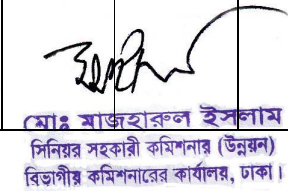 মোঃ মাজহারুল ইসলাম
সিনিয়র সহকারী কমিশনার (উন্নয়ন)
বিভাগীয় কমিশনারের কার্যালয়, ঢাকা।